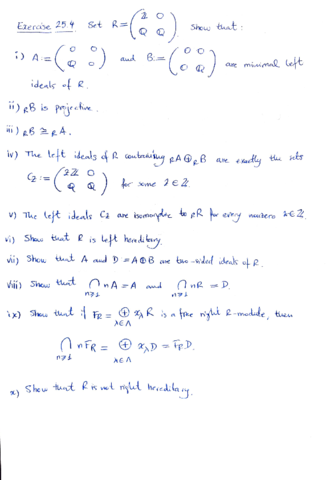 Exercise 25.4 Set R = ( ℤ 0 / ℚ ℚ ). Show that:
i) A := ( 0 0 / ℚ 0 ) and B := ( 0 0 / 0 ℚ ) are minimal left
ideals of R.
ii) RB is projective.
iii) RB ≅ RA.
iv) The left ideals of R containing RA ⊕ RB are exactly the sets
C_z := ( zℤ 0 / ℚ ℚ ) for some z ∈ ℤ.
v) The left ideals C_z are isomorphic to RR for every nonzero z ∈ ℤ.
vi) Show that R is left hereditary.
vii) Show that A and D = A ⊕ B are two-sided ideals of R.
viii) Show that ⋂ n≥1 nA = A and ⋂ n≥1 nR = D.
ix) Show that if F_R = ⊕ λ∈Λ x_λ R is a free right R-module, then
⋂ n≥1 nF_R = ⊕ λ∈Λ x_λ D = F_R D.
x) Show that R is not right hereditary.